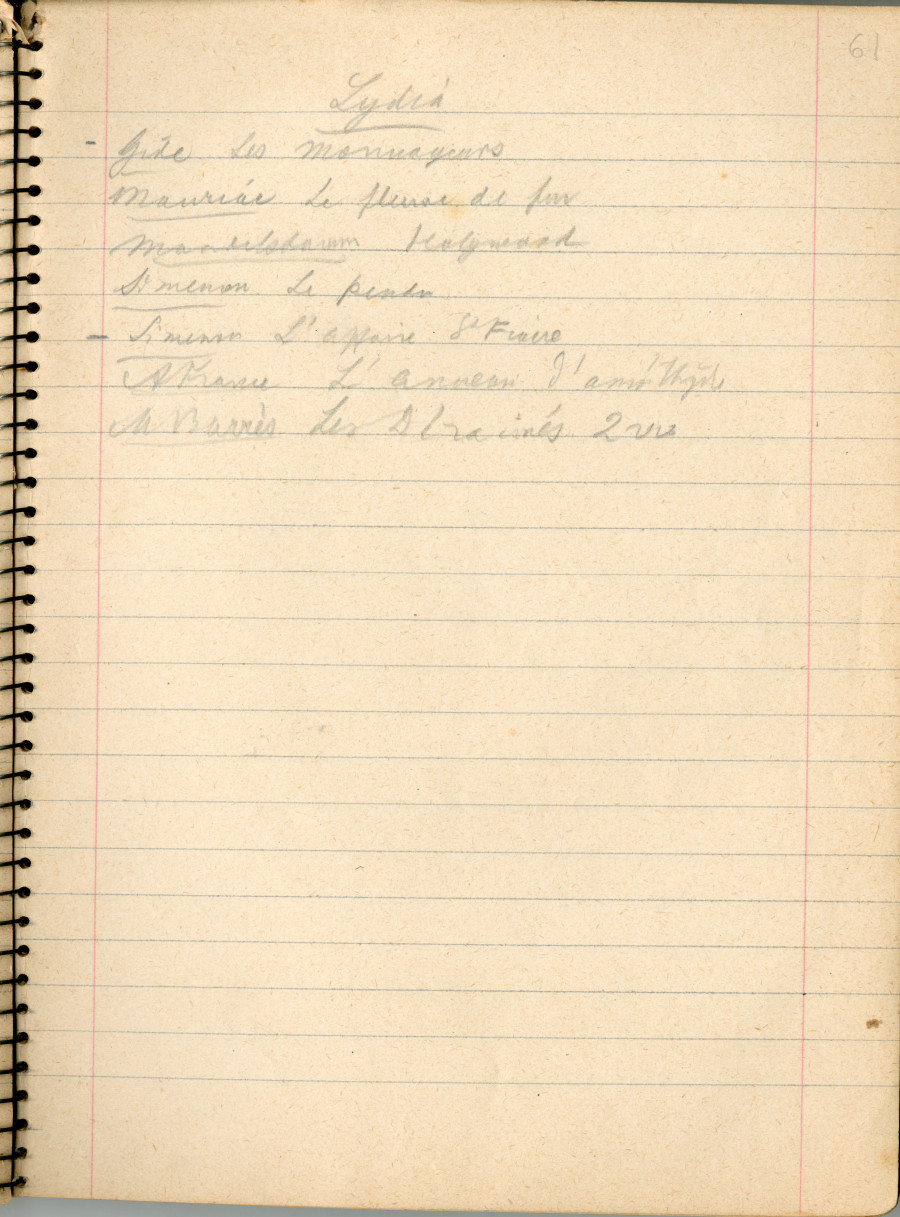 61
Lydiá
- Gide Les Monnayeurs
Mauriác Le fleuve de feu
Mandelstamm Holywood
Simenon Le pendu
- Simenon L'affaire St Fiacre
A France L'anneau d'améthyste
M Barrès Les Déracinés 2 vol